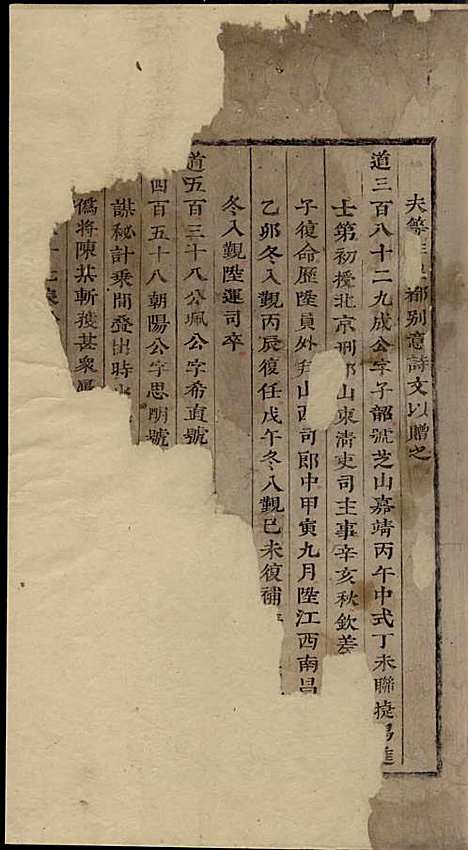 夫 都别意詩文以贈之
道三百八十二九成公字子韶號芝山嘉靖丙午中式丁未聯捷 進
士第初授北京刑部山東清吏司主事辛亥秋欽差
子復命歷陞員外 山西司郎中甲寅九月陞江西南昌
乙卯冬入覲丙辰復任戊午冬入覲巳未復補
冬入覲陞運司卒
道五百三十八公珮公字希直號
四百五十八朝陽公字思明號
謀秘計乘間叠出時
僞將陳某斬獲甚衆